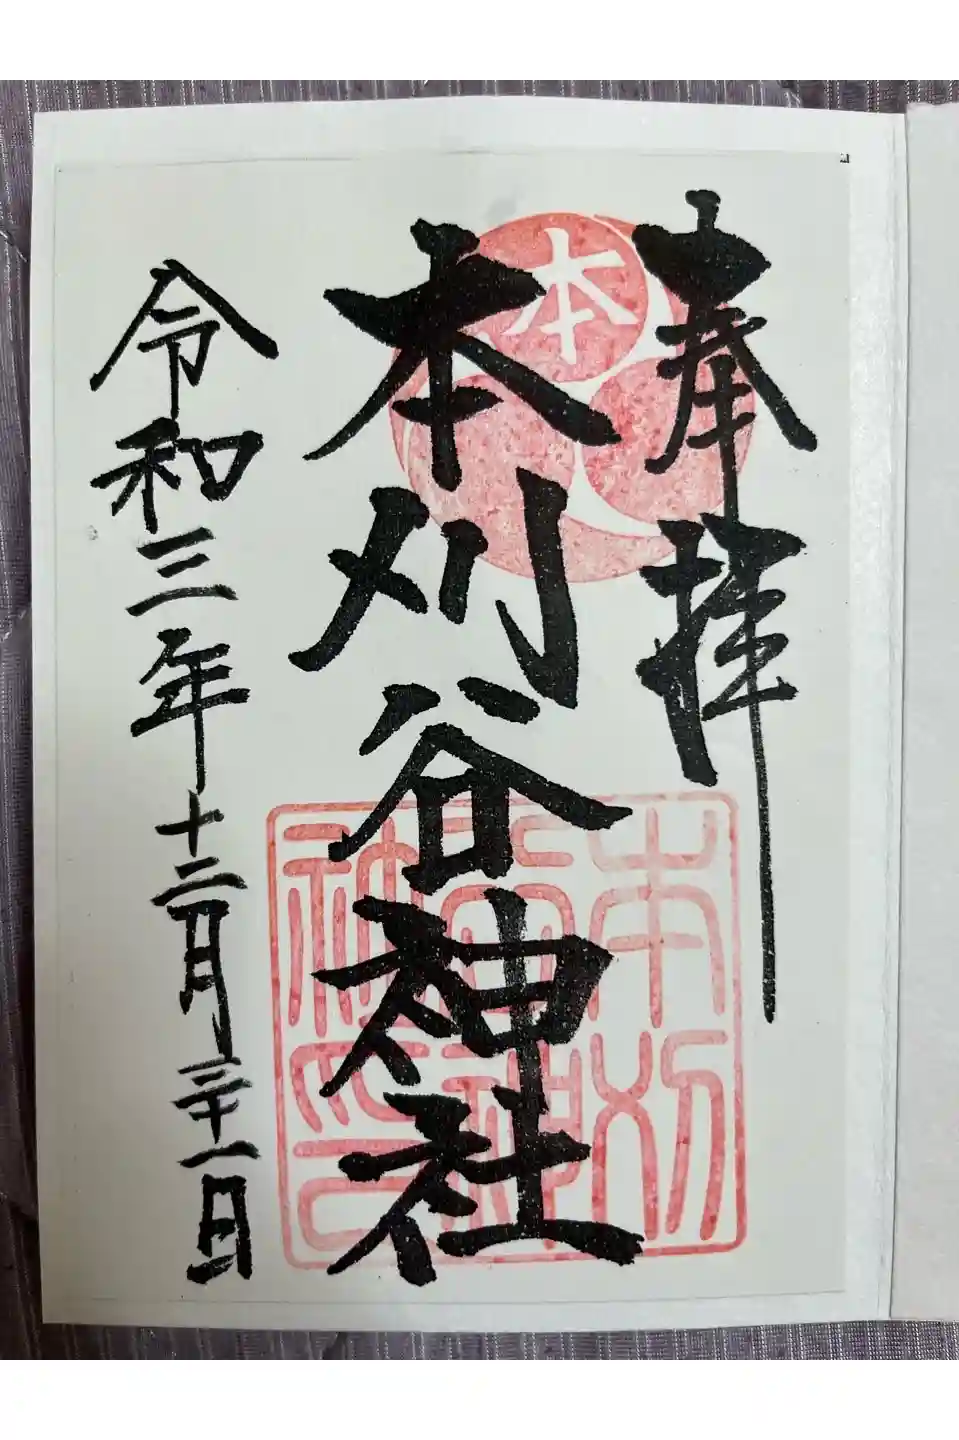 奉拝
本
本刈谷神社
本刈
谷神
社印
令和三年十二月三十一日